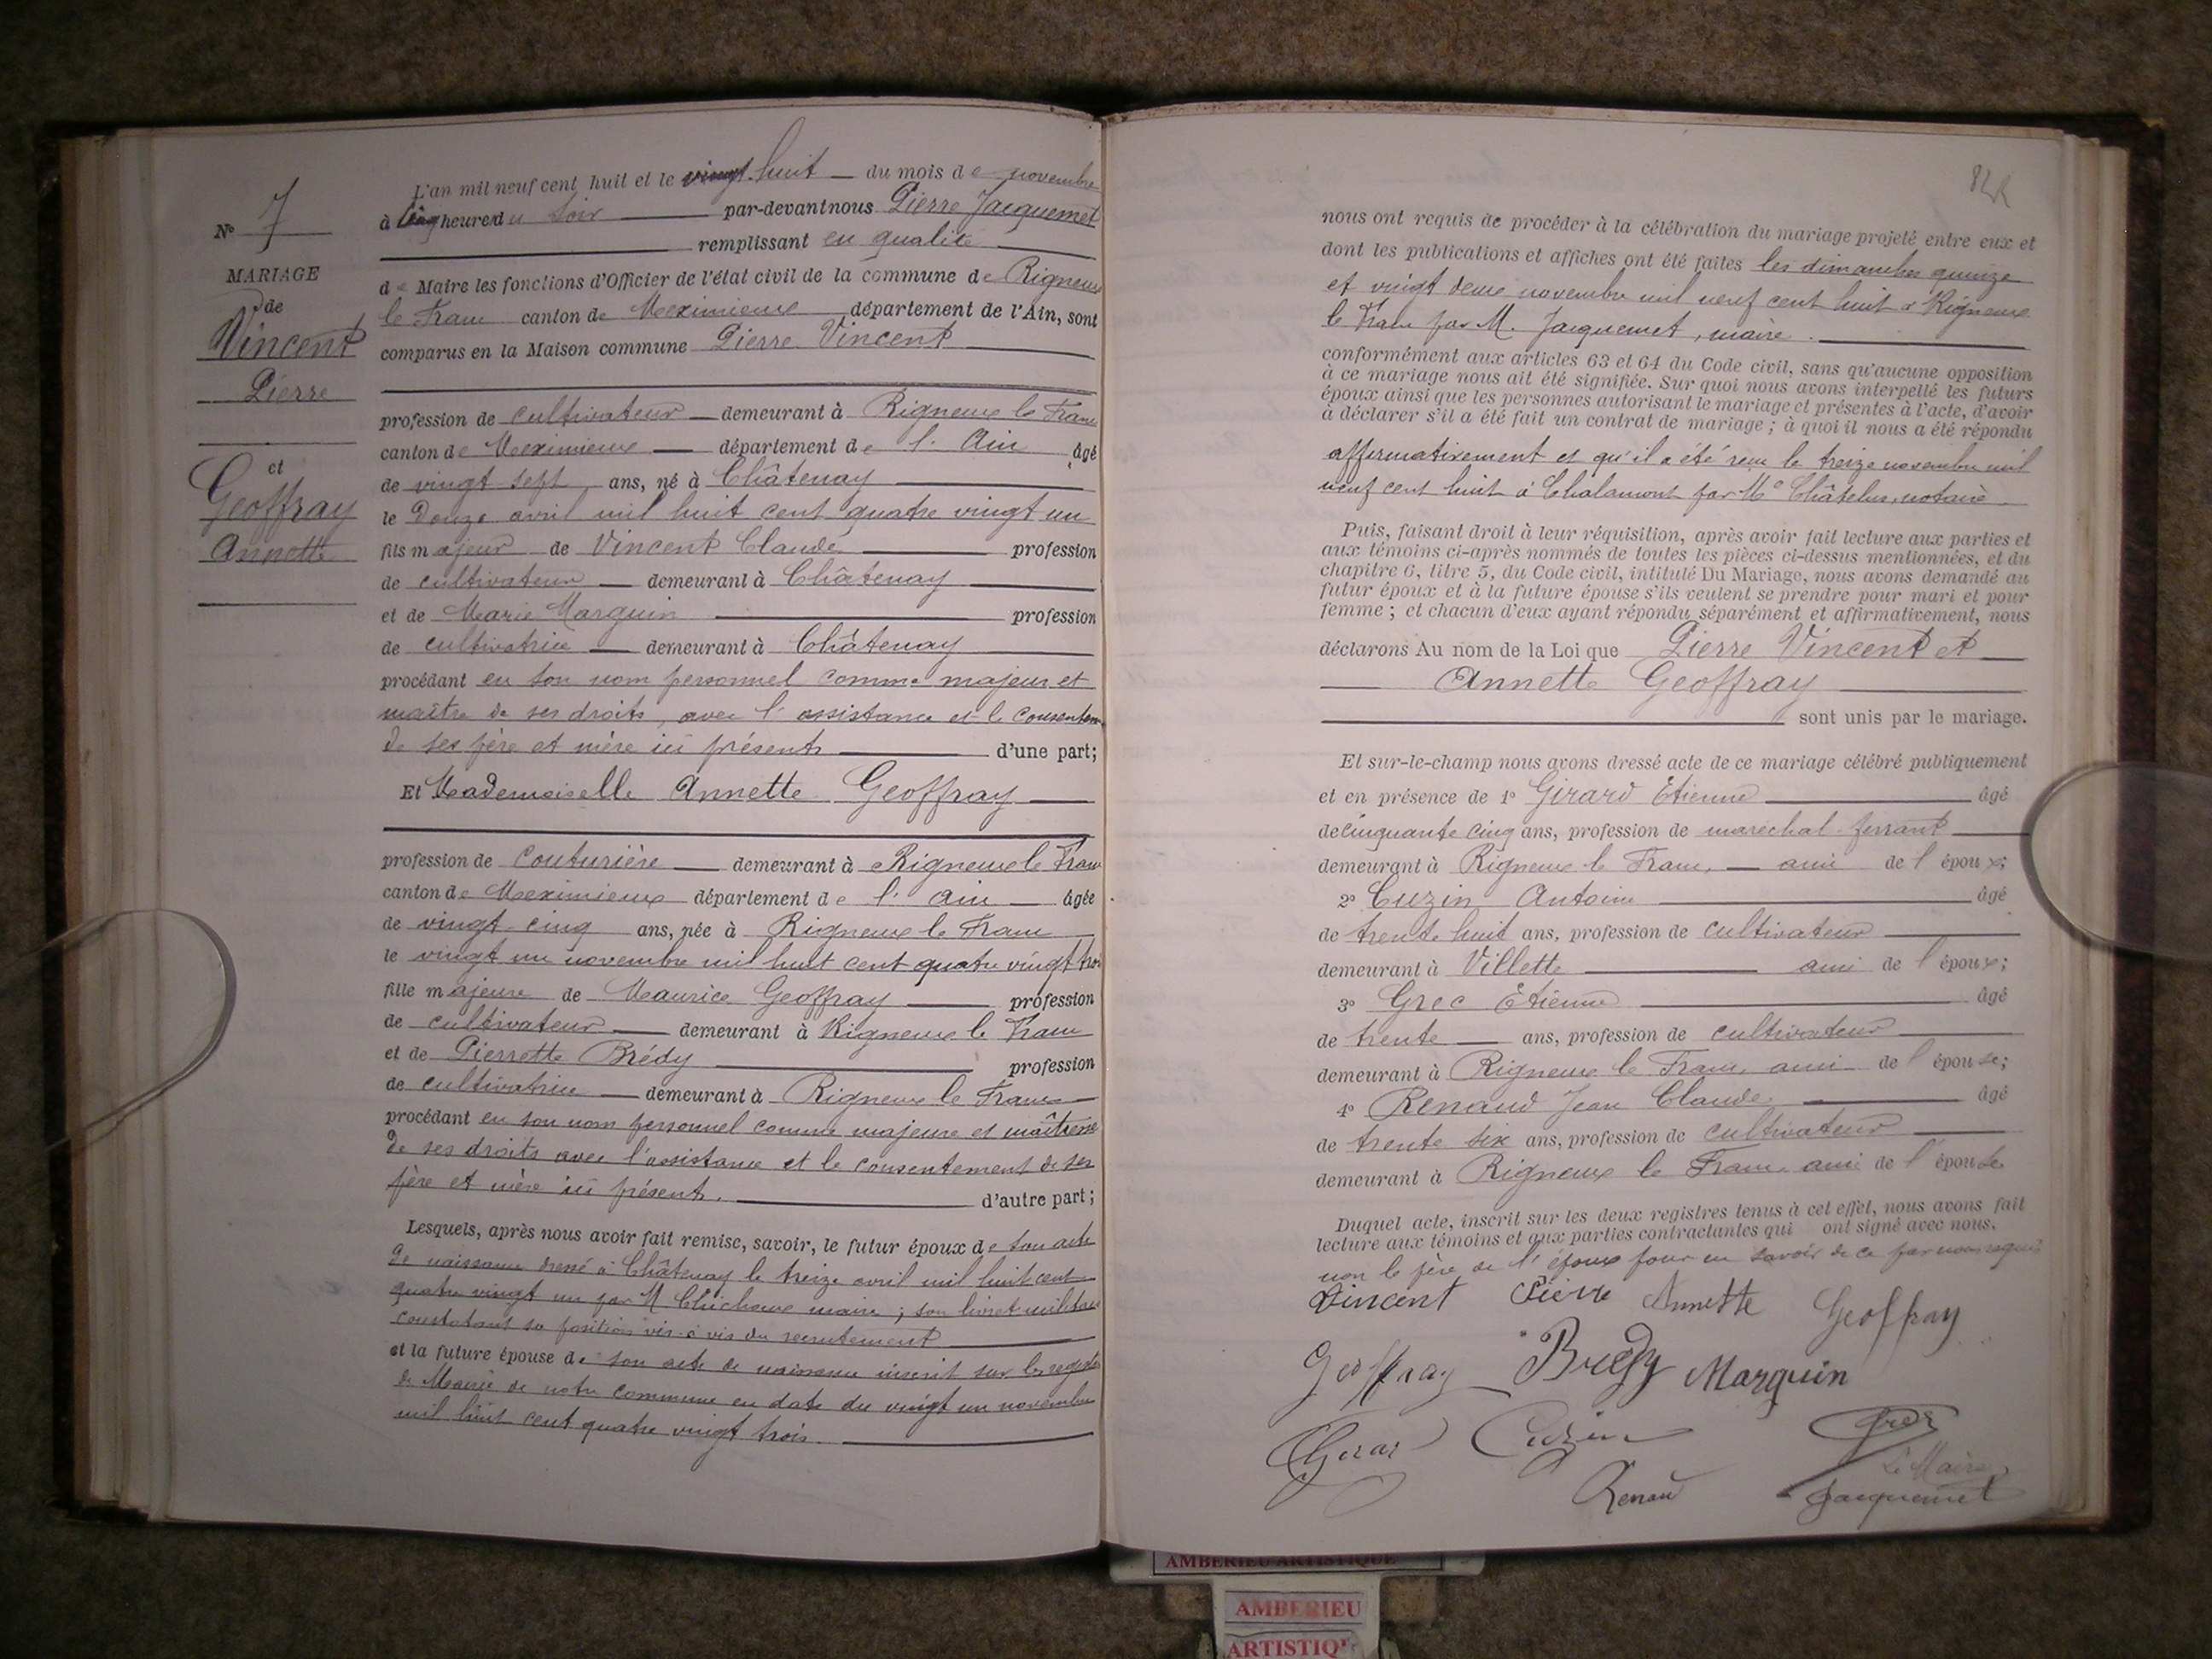 N° 7
MARIAGE
de
Vincent
Pierre
et
Geoffray
Annette
L'an mil neuf cent huit et le vingt-huit du mois de novembre
à cinq heures du soir par-devant nous Pierre Jacquemet
remplissant en qualité
de Maire les fonctions d'Officier de l'état civil de la commune de Rigneux
le Franc canton de Meximieux département de l'Ain, sont
comparus en la Maison commune Pierre Vincent
profession de cultivateur demeurant à Rigneux le Franc
canton de Meximieux département de l'Ain âgé
de vingt sept ans, né à Châtenay
le douze avril mil huit cent quatre vingt un
fils majeur de Vincent Claude profession
de cultivateur demeurant à Châtenay
et de Marie Marguin profession
de cultivatrice demeurant à Châtenay
procédant en son nom personnel comme majeur et
maître de ses droits, avec l'assistance et le consentem
de ses père et mère ici présents d'une part;
Et Mademoiselle Annette Geoffray
profession de couturière demeurant à Rigneux le Franc
canton de Meximieux département de l'Ain âgée
de vingt-cinq ans, née à Rigneux le Franc
le vingt un novembre mil huit cent quatre vingt trois
fille majeure de Maurice Geoffray profession
de cultivateur demeurant à Rigneux le Franc
et de Pierrette Brédy profession
de cultivatrice demeurant à Rigneux le Franc
procédant en son nom personnel comme majeure et maîtresse
de ses droits avec l'assistance et le consentement de ses
père et mère ici présents. d'autre part;
Lesquels, après nous avoir fait remise, savoir, le futur époux de son acte
de naissance dressé à Châtenay le treize avril mil huit cent
quatre vingt un par M maire; son livret militaire
constatant sa position vis-à-vis du recrutement
et la future épouse de son acte de naissance inscrit sur les registres
de Mairie de notre commune en date du vingt un novembre
mil huit cent quatre vingt trois.
nous ont requis de procéder à la célébration du mariage projeté entre eux et
dont les publications et affiches ont été faites les dimanches quinze
et vingt deux novembre mil neuf cent huit à Rigneux
le Franc par M. Jacquemet, maire.
conformément aux articles 63 et 64 du Code civil, sans qu'aucune opposition
à ce mariage nous ait été signifiée. Sur quoi nous avons interpellé les futurs
époux ainsi que les personnes autorisant le mariage et présentes à l'acte, d'avoir
à déclarer s'il a été fait un contrat de mariage; à quoi il nous a été répondu
affirmativement et qu'il a été reçu le treize novembre mil
neuf cent huit à Chalamont par Me Châtelus, notaire
Puis, faisant droit à leur réquisition, après avoir fait lecture aux parties et
aux témoins ci-après nommés de toutes les pièces ci-dessus mentionnées, et du
chapitre 6, titre 5, du Code civil, intitulé Du Mariage, nous avons demandé au
futur époux et à la future épouse s'ils veulent se prendre pour mari et pour
femme; et chacun d'eux ayant répondu séparément et affirmativement, nous
déclarons Au nom de la Loi que Pierre Vincent et
Annette Geoffray
sont unis par le mariage.
Et sur-le-champ nous avons dressé acte de ce mariage célébré publiquement
et en présence de 1° Girard Etienne âgé
de cinquante cinq ans, profession de maréchal-ferrant
demeurant à Rigneux le Franc, ami de l'époux;
2° Cuzin Antoine âgé
de trente huit ans, profession de cultivateur
demeurant à Villette ami de l'époux;
3° Grec Etienne âgé
de trente ans, profession de cultivateur
demeurant à Rigneux le Franc ami de l'épouse;
4° Renaud Jean Claude âgé
de trente six ans, profession de cultivateur
demeurant à Rigneux le Franc ami de l'épouse
Duquel acte, inscrit sur les deux registres tenus à cet effet, nous avons fait
lecture aux témoins et aux parties contractantes qui ont signé avec nous,
non le père de l'époux pour ne savoir de ce par nous requis
Vincent Pierre Annette Geoffray
Geoffray Bredy Marguin
Girard Cuzin Grec
Le Maire
Renaud Jacquemet
AMBERIEU ARTISTIQUE
AMBERIEU
ARTISTIQUE